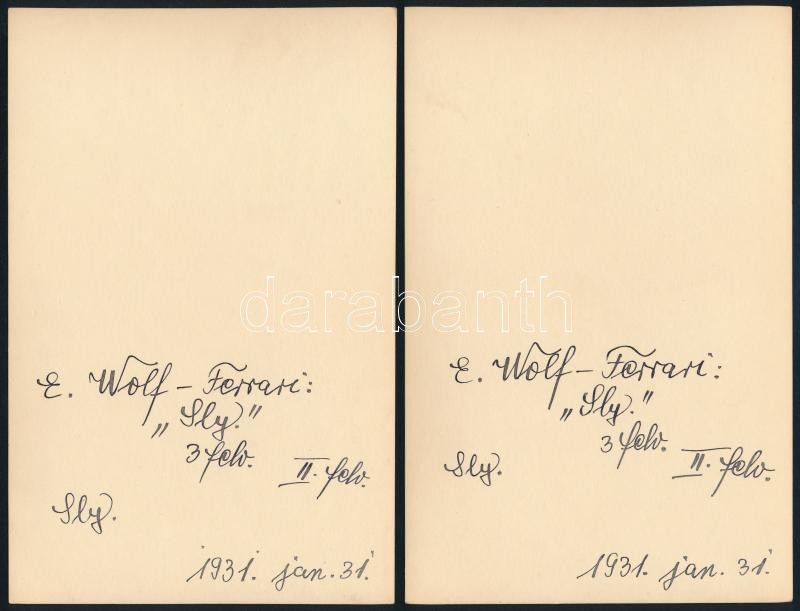 E. Wolf - Ferrari:
„Sly."
3 felv.
II. felv.
Sly.
1931. jan. 31.
E. Wolf - Ferrari:
„Sly."
3 felv.
II. felv.
Sly.
1931. jan. 31.
darabanth